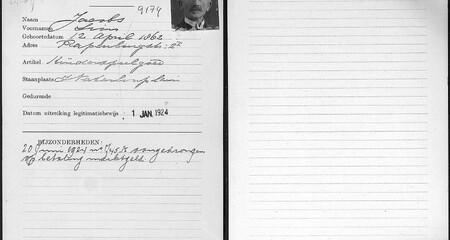 9174
Naam Jacobs
Voornamen Levi
Geboortedatum 12 April 1862
Adres Rapenburgstr: 22
Artikel Kinderspeelgoed
Staanplaats J. Waterlooplein
Gedurende
Datum uitreiking legitimatiebewijs 1 JAN. 1924
BIJZONDERHEDEN:
20 Juni 1924 no /45 K aangedrongen
op betaling marktgeld.